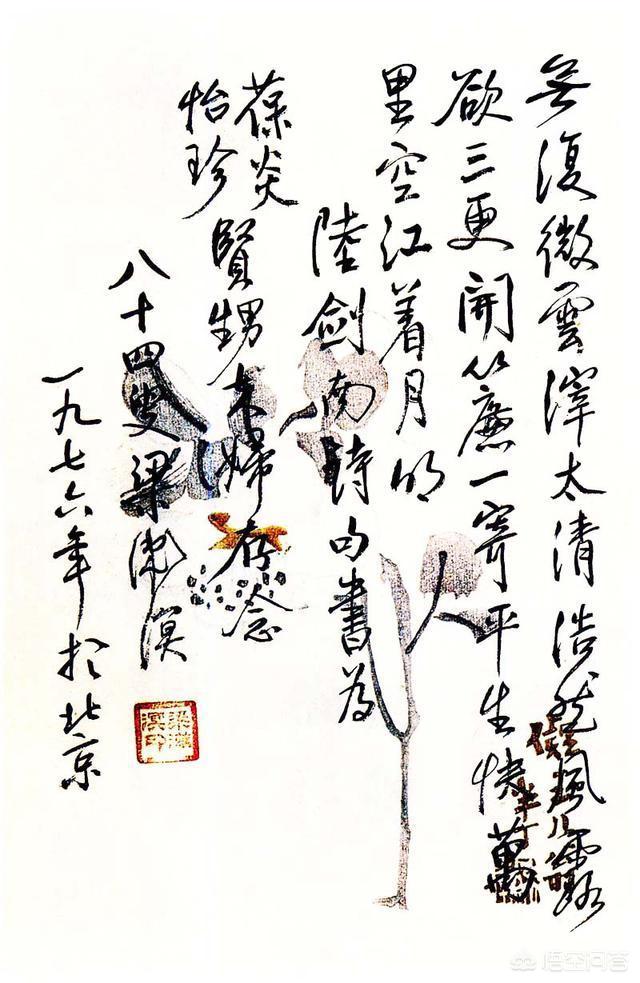 無復微雲滓太清浩然風露
欲三更開簾一寄平生快萬
里空江着月明
陸劍南詩句書為
葆炎
怡珍
賢甥夫婦存念
八十四叟梁漱溟
一九七六年於北京
梁漱溟印
悟空问答